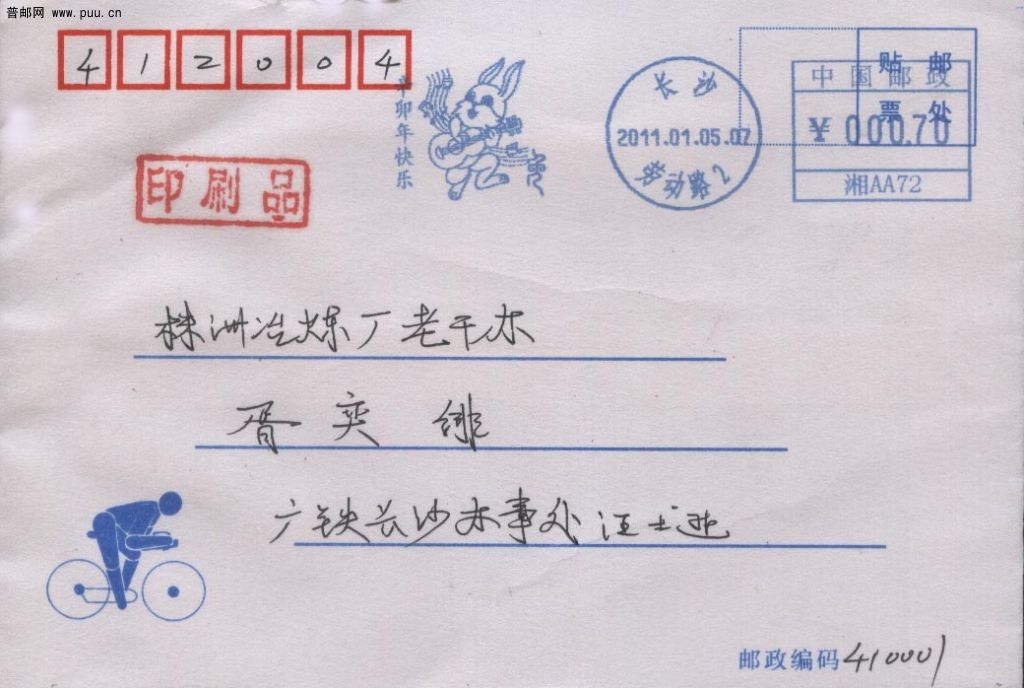 普邮网 www.puu.cn
412004
辛卯年快乐
长沙
2011.01.05.07
劳动路2
贴邮
票处
中国邮政
¥000.70
湘AA72
印刷品
株洲冶炼厂老干办
胥奕绯
广铁长沙办事处汪士逊
邮政编码410001